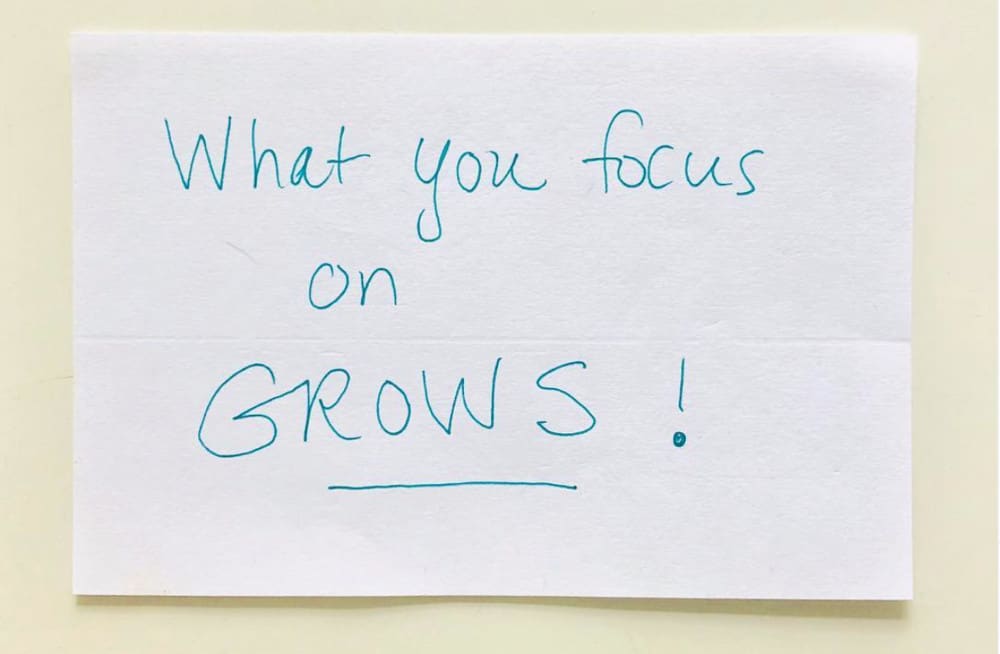 What you focus
on
GROWS!